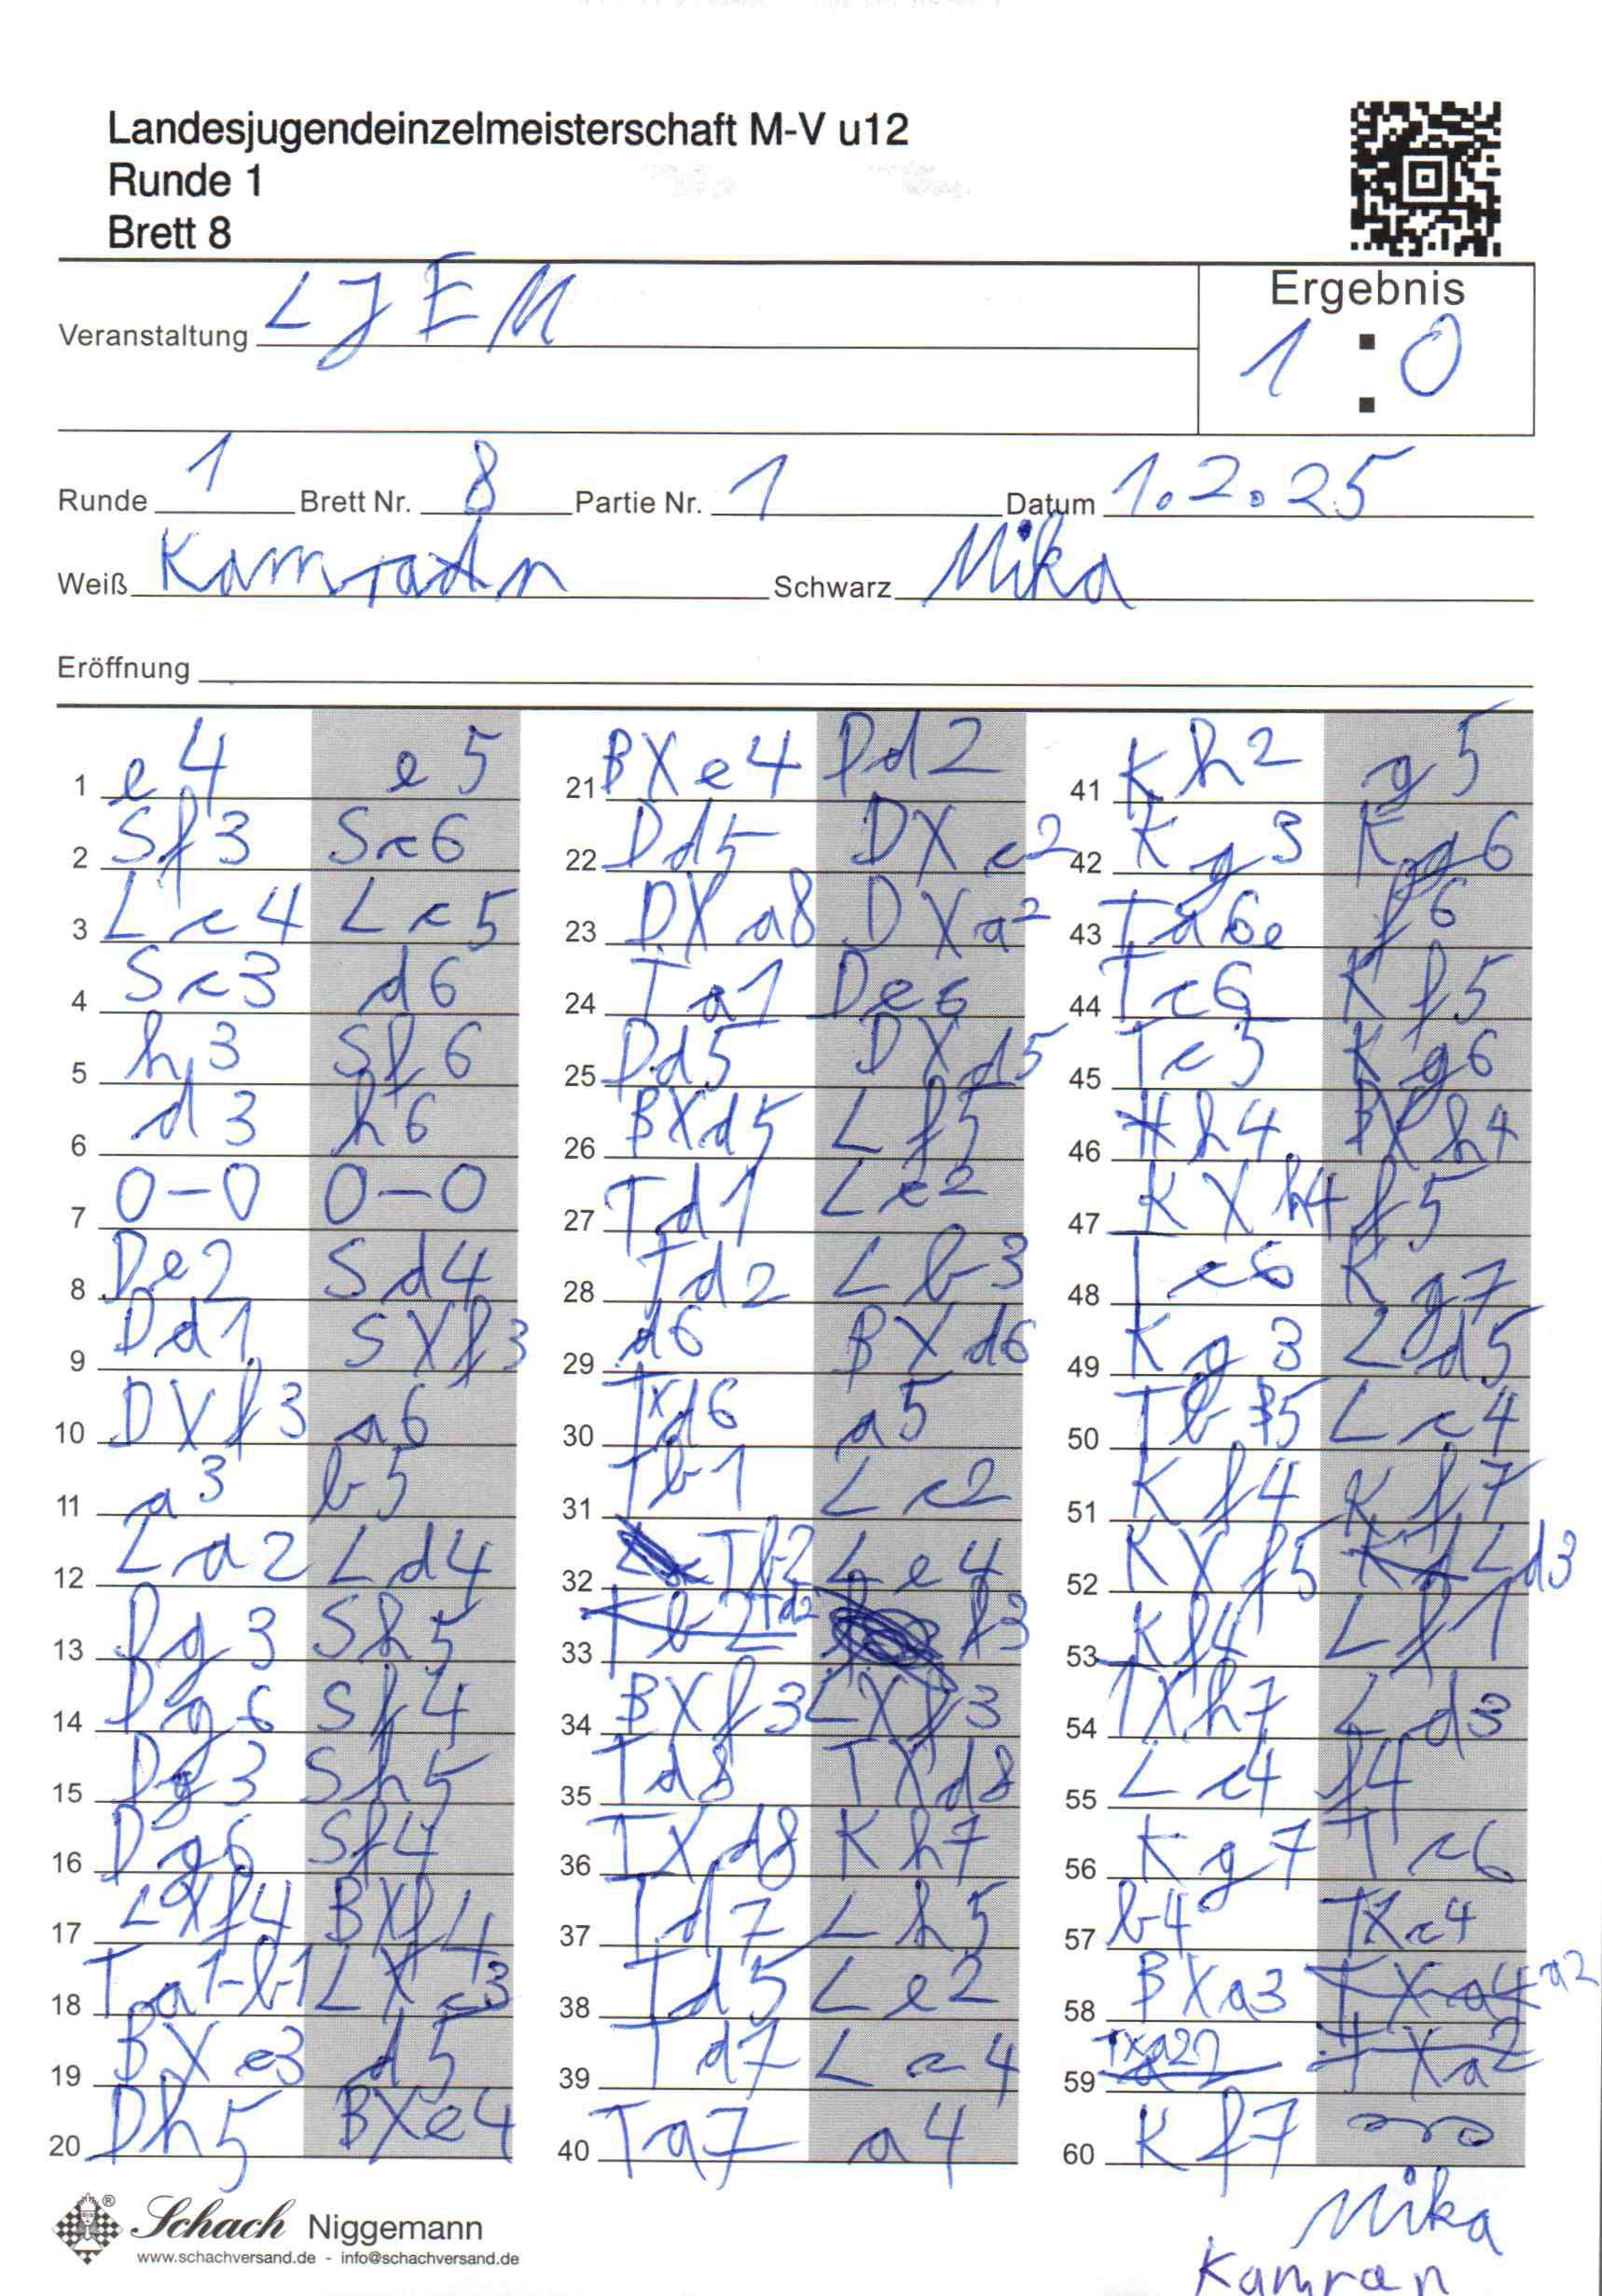 Landesjugendeinzelmeisterschaft M-V u12
Runde 1
Brett 8
Veranstaltung LJEM
Ergebnis
1 : 0
Runde 1 Brett Nr. 8 Partie Nr. 1 Datum 1.2.25
Weiß Schwarz Mika
Eröffnung
1 e4 e5
2 Sf3 Sc6
3 Lc4 Lc5
4 Sc3 d6
5 h3 Sf6
6 d3 h6
7 0-0 0-0
8 De2 Sd4
9 Dd1 SXf3
10 DXf3 a6
11 a3 b5
12 La2 Ld4
13 Dg3 Sh5
14 Dg6 Sf4
15 Dg3 Sh5
16 Dg6 Sf4
17 LXf4 BXf4
18 Ta1-b1 LXc3
19 BXc3 d5
20 Dh5 BXe4
21 BXe4 Dd2
22 Dd5 DXc2
23 DXa8 DXa2
24 Ta1 De6
25 Dd5 DXd5
26 BXd5 Lf5
27 Td1 Lc2
28 Td2 Lb3
29 d6 BXd6
30 TXd6 a5
31 Tb1 Lc2
32 Tb2 Le4
33 Td2 f3
34 BXf3 LXf3
35 Td8 TXd8
36 TXd8 Kh7
37 Td7 Lh5
38 Td5 Le2
39 Td7 Lc4
40 Ta7 a4
41 Kh2 g5
42 Kg3 Kg6
43 Ta6 f6
44 Tc6 Kf5
45 Tc5 Kg6
46 h4 BXh4
47 KXh4 f5
48 Tc6 Kg7
49 Kg3 Ld5
50 Tb5 Lc4
51 Kf4 Kf7
52 KXf5 Ld3
53 Kf4 Lf1
54 TXh7 Ld3
55 Lc4 f4
56 Kg7 Tc6
57 b4 TXc4
58 BXa3 a2
59 TXa2
60 Kf7
Mika
Kamran
Schach Niggemann
www.schachversand.de - info@schachversand.de